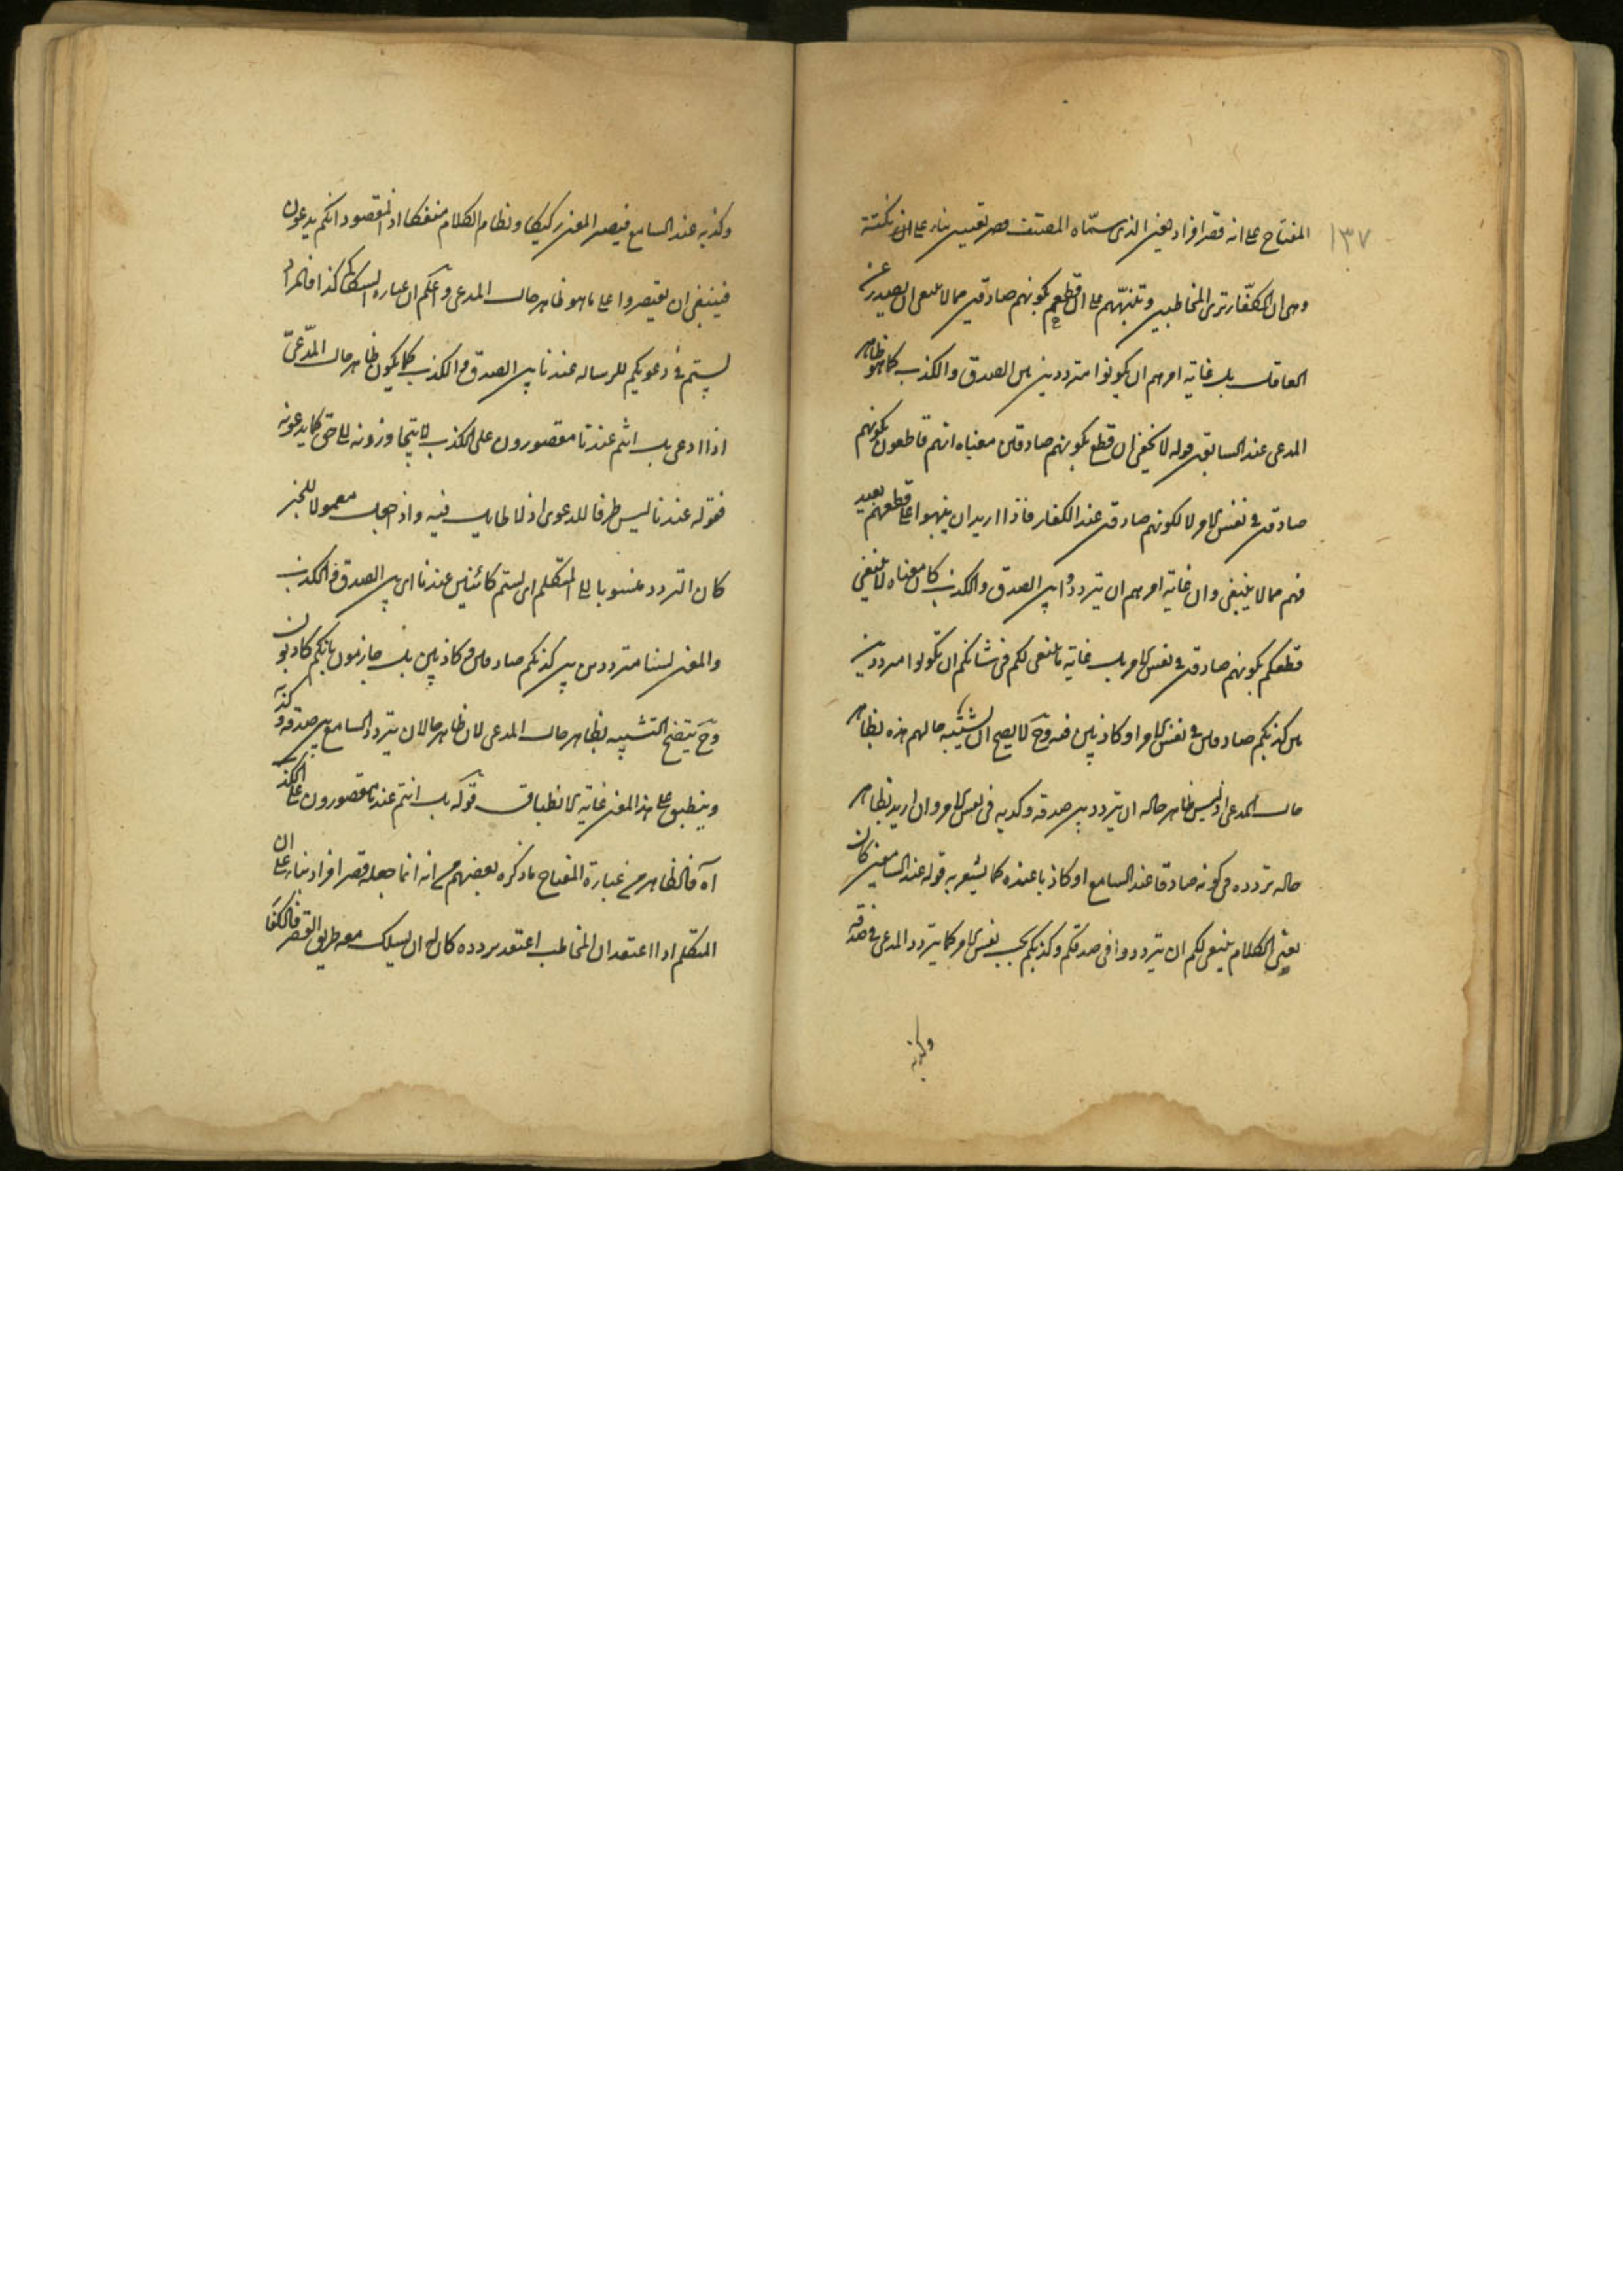 ١٣٧
المفتاح على انه قصر افراد بمعنى الذى سمّاه المصنف قصر تعيين بناء على ان نكتته
وهى ان الكفّار ترى المخاطبين وتنبّههم على ان قطعهم بكونهم صادقين مما لا ينبغى ان يصدر عن
العاقل بل غاية امرهم ان يكونوا مترددين بين الصدق والكذب كما هو ظاهر
المدعى عند السابق قوله لا يخفى ان قطع بكونهم صادقين معناه انهم قاطعون بكونهم
صادقين فى نفس الامر لا لكونهم صادقين عند الكفار فاذا اريد ان ينبهوا على قطعهم بعيد
فهم مما لا ينبغى وان غاية امرهم ان يترددوا بين الصدق والكذب كان معناه لا ينبغى
قطعكم بكونهم صادقين فى نفس الامر بل غاية ما ينبغى لكم فى شانكم ان تكونوا مترددين
بين كونكم صادقين فى نفس الامر او كاذبين فيه وح لا يصح ان يشبّه حالهم هذه بظاهر
حال المدعى اذ ليس ظاهر حاله ان يتردد بين صدقه وكذبه فى نفس الامر وان اريد بظاهر
حاله تردده فى كونه صادقا عند السامع او كاذبا عنده كما يشعر به قوله عند السامعين كان
معنى الكلام ينبغى لكم ان يترددوا فى صدقكم وكذبكم بحسب نفس الامر كما يتردد المدعى فى صدقه
وكذبه
وكذبه عند السامع فيصير المعنى ركيكا ونظام الكلام منفكا اذ المقصود انكم يدعون
فينبغى ان يقتصروا على ما هو ظاهر حال المدعى واعلم ان عبارة السكاكى كذا فالمراد
لستم فى دعويكم للرسالة عندنا بين الصدق والكذب كما يكون ظاهر حال المدّعى
اذا ادعى بل انتم عندنا مقصورون على الكذب لا يتجاوزونه الى حق كما يدعونه
فقوله عندنا ليس ظرفا للدعوى اذ لا طايل فيه واذ جعل معمولا للخبر
كان التردد منسوبا الى المتكلم اى لستم كائنين عندنا اى بين الصدق والكذب
والمعنى لسنا مترددين بين كونكم صادقين وكاذبين بل جازمون بانكم كاذبون
وح يتضح التشبيه بظاهر حال المدعى لان ظاهر حاله ان يتردد السامع بين صدقه وكذبه
وينطبق على هذا المعنى غاية الانطباق قوله بل انتم عندنا مقصورون على الكذب
آه فالظاهر من عبارة المفتاح ما ذكره بعضهم من انه انما جعله قصر افراد بناء على ان
المتكلم اذا اعتقد ان المخاطب اعتقد تردده كان له ان يسلك معه طريق القصر فالكفار